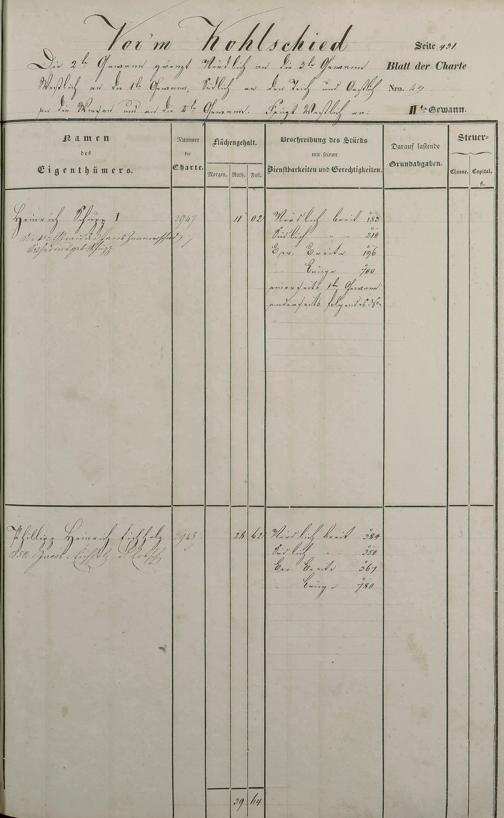 Vor'm Kohlschied
Seite 421
Die 2te Gewann grenzt Nördlich an die 3te Gewann
Blatt der Charte
Westlich an die 1te Gewann, Südlich an den Teich und Oestlich
Nro. 49
an die Wiesen und an die 4te Gewann. Fängt Westlich an.
IIte Gewann.
Namen
des
Eigenthümers.
Nummer
der
Charte.
Flächengehalt.
Morgen. Ruth. Fuß.
Beschreibung des Stücks
mit seinen
Dienstbarkeiten und Gerechtigkeiten.
Darauf lastende
Grundabgaben.
Steuer-
Classe. Capital.
fl.
Heinrich Schupp I
3947 11 02 Nördlich breit 182
Südlich " 210
Ger. Breite 196
Länge 700
einerseits 1te Gewann
anderseits folgendes
Phillipp Heinrich Eichholz
3948 28 62 Nördlich breit 384
Südlich " 350
Ger Breite 367
Länge 780
39 64